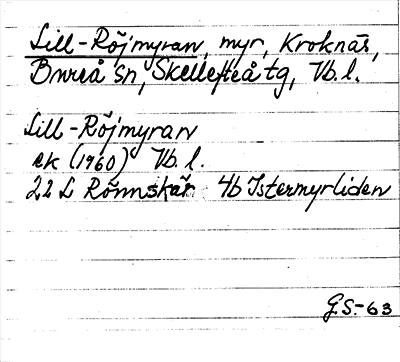 Lill-Röjmyran, myr, Kroknäs,
Bureå sn, Skellefteå tg, Vb. l.
Lill-Röjmyran
ek (1960) Vb. l.
22 L Rönnskär 4b Istermyrliden
G.S.-63